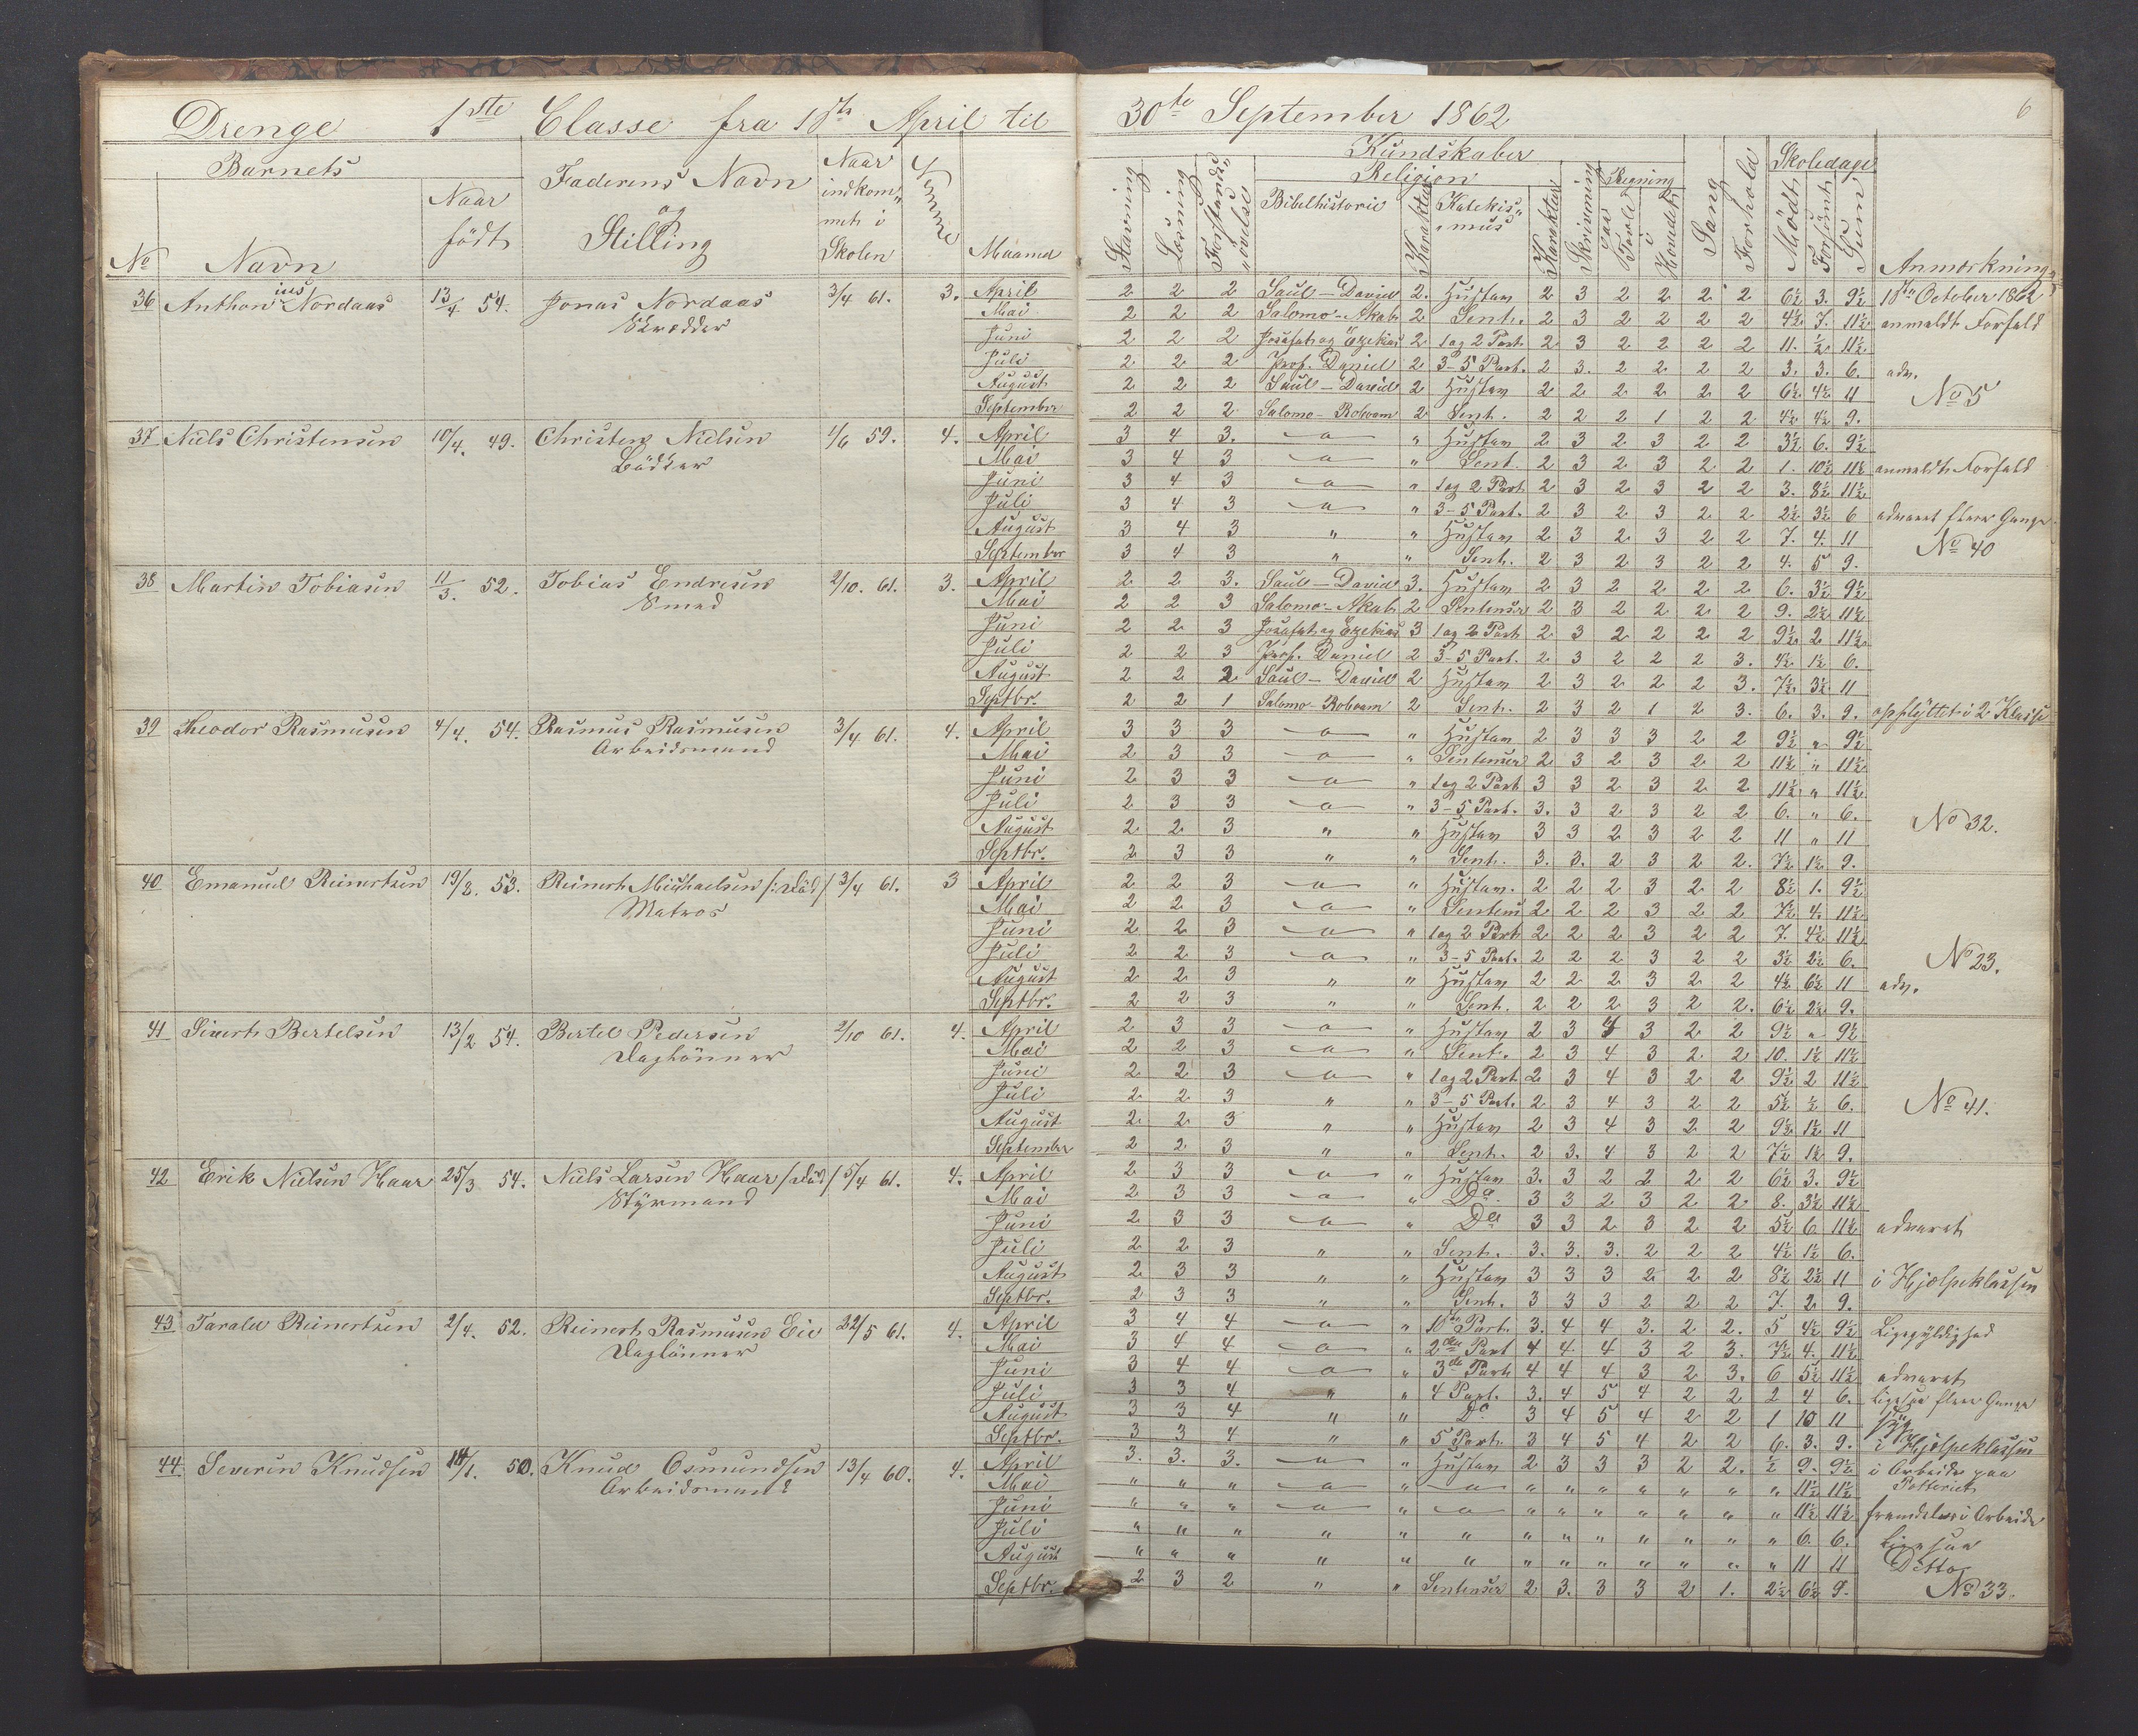 Drenge 1ste Classe fra 1ste April til 30te September 1862
6
Barnets
No
Navn
Naar födt
Faderens Navn og Stilling
Naar indkommet i Skolen
Evner
Maaned
Kundskaber
Stavning
Læsning
Forstandsøvelse
Religion
Bibelhistorie
Karakter
Katekismus
Karakter
Skrivning
Regning
paa Tavle
i Hovedet
Sang
Forhold
Skoledage
Mödt
Forsömt
Sum
Anmærkning
36 Anthonius Nordaas 13/4 54. Jonas Nordaas 3/4 61. 3. April 2 2 2 Saul – David 2. Hustav 2 3 2 2 2 2 6½ 3. 9½ 1ste October 1862
Skrædder Mai 2 2 2 Salomo - Akab 2 Sent. 2 3 2 2 2 2 4½ 7. 11½ anmeldt Forfald
Juni 2 2 2 Josafat og Ezekias 2 1 og 2 Part. 2 3 2 2 2 2 11. ½ 11½
Juli 2 2 2 Prof. Daniel 2 3-5 Part. 2 3. 2 2 2 2 3. 3. 6. adv.
August 2 2 2 Saul – David 2 Hustav 2 2 2 2 2 2 6½ 4½ 11 No 5
September 2 2 2 Salomo - Roboam 2 Sent. 2 2 2 1 2 2 4½ 4½ 9.
37 Niels Christensen 10/4. 49. Christen Nielsen 1/6 59. 4. April 3 4 3. a " Hustav 2 3 2 3 2 2 3½ 6. 9½
Bödker Mai 3 4 3 a " Sent. 2 3 2 3 2 2 1. 10½ 11½ anmeldt Forfald
Juni 3 4 3 a " 1 og 2 Part. 2 3 2 3 2 2 3. 8½ 11½
Juli 3 4 3 a " 3-5 Part. 2 3 2 3 2 2 2½ 3½ 6 advaret flere Gange
August 3 4 3 " " Hustav 2 3 2 3 2 2 7. 4. 11 No 40
September 3 4 3 " " Sent. 2 3 2 3 2 2 4. 5 9.
38 Martin Tobiasen 11/3. 52. Tobias Endresen 2/10. 61. 3. April 2 2 3. Saul – David 3. Hustav 2 3 2 2 2 2 6. 3½ 9½
Smed Mai 2 2 3 Salomo - Akab 2 Sentenser 2 3 2 2 2 2 9. 2½ 11½
Juni 2 2 3 Josafat og Ezekias 3 1 og 2 Part 2 3 2 2 2 2 9½ 2 11½
Juli 2 2 3 Prof. Daniel 2 3-5 Part. 2 3 2 2 2 3. 4½ 1½ 6.
August 2 2 2 Saul – David 2 Hustav 2 3 2 2 2 3. 7½ 3½ 11
Septbr. 2 2 1 Salomo - Roboam 2 Sent. 2 3 2 1 2 3. 6. 3. 9. opflyttet i 2 Klasse
39 Theodor Rasmusen 4/4. 54. Rasmus Rasmusen 3/4 61. 4. April 3 3 3 a " Hustav 2 3 3 3 2 2 9½ " 9½
Arbeidsmand Mai 2 3 3 a " Sentenser 2 3 2 3 2 2 11½ " 11½
Juni 2 3 3 a " 1 og 2 Part 3 3 2 3 2 2 11½ " 11½
Juli 2 3 3 a " 3-5 Part. 3. 3 2 3 2 2 6. " 6.
August 2 2 3 " " Hustav 3 3 2 3 2 2 11 " 11 No 32.
Septbr. 2 3 3 " " Sent. 3. 3. 2 3 2 2. 7½ 1½ 9.
40 Emanuel Reinertsen 19/8. 53. Reinert Michaelsen /: Död/ 3/4 61. 3 April 2 2 3 a " Hustav. 2 2 2 3 2 2 8½ 1. 9½
Matros Mai 2 2 3 a " Sentens 2 2 2 3 2 2 7½ 4. 11½
Juni 2 2 3 a " 1 og 2 Part 2 2 2 3 2 2 7. 4½ 11½
Juli 2 2 3 a " 3-5 Part. 2 2 2 3 2 2 3½ 2½ 6. No 23.
August 2 2 3 " " Hustav 2 2 2 3 2 2 4½ 6½ 11 adv.
Septbr. 2 2 3 " " Sent. 2 2 2 3 2 2. 6½ 2½ 9.
41 Sivert Bertelsen 13/2 54. Bertel Pedersen 2/10 61. 4. April 2 3 3 a " Hustav 2 3 4 3 2 2 9½ " 9½
Daglönner Mai 2 2 3 a " Sent. 2 3 4 3 2 2 10. 1½ 11½
Juni 2 2 3 a " 1 og 2 Part 2 3 4 3 2 2 9½ 2 11½
Juli 2 2 3 " " 3-5 Part. 2 3 4 3 2 2 5½ ½ 6. No 41.
August 2 2 3 " " Hustav 2 3 4 3 2 2 9½ 1½ 11
September 2 2 3 " " Sent. 2 3. 4 3 2 2 7½ 1½ 9.
42 Erik Nielsen Haar 25/3 54. Niels Larsen Haar /Död/ 5/4 61. 4. April 2 3 3 a " Hustav 3. 3 2 2 2 2 6½ 3. 9½
Styrmand Mai 2 3 3 a " Do. 3 3 2 3 2 2. 8. 3½ 11½
Juni 2 3 3 a " Do 3 3 2 3 2 2 5½ 6 11½ advaret
Juli 2 2 3 " " Sent. 3. 3. 3. 2 2 2 4½ 1½ 6.
August 2 3 3 " " Hustav 3 3 3 2 2 2 8½ 2½ 11 i Hjælpeklassen
Septbr. 2 3 3 " " Sent. 3 3 3 2 2 2 7. 2 9.
43 Tarald Reinertsen 2/4. 52. Reinert Rasmusen Eie 22/5 61. 4. April 3 4 4 a " 1ste Part. 3. 4 4 3. 2 2. 5 4½ 9½ Ligegyldighed
Daglönner Mai 3 4 4 a " 2den Part 4 4 4 3 2 3. 7½ 4. 11½
Juni 3 4 4 a " 3de Part 4 4 4 3 2 3. 6 5½ 11½ advaret
Juli 3 3 4 " " 4 Part. 3. 4 5 4 2 2 2 4 6. ligesaa flere Gange
August 3 3 4 " " Do 3 4 5 4 2 2 1 10 11 syg
Septbr. 3 3 4 " " 5 Part. 3 4 5 4 2 2 6. 3. 9. i Hjælpeklassen
44. Severin Knudsen 1. 50. Knud Osmundsen 13/4 60. 4. April 3. 3. 3. a " Hustav 2 3 3 3 2 2. ½ 9. 9½ i Arbeide paa
Arbeidsmand Mai " " " a " a " " " " " " " 11½ 11½ Potteriet
Juni " " " a " a " " " " " " " 11½ 11½ fremdeles i Arbeide
Juli " " " " " " " " " " " " " 6. 6. ligesaa
August " " " " " " " " " " " " " 11 11 Ditto
Septbr. 2 3 2 " " Sentenser 2 3. 3 3 2 1. 2½ 6½ 9. No 33.